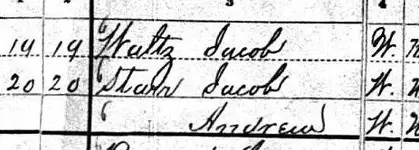 19 19 Waltz Jacob W.
20 20 Starr Jacob W.
" Andrew W.